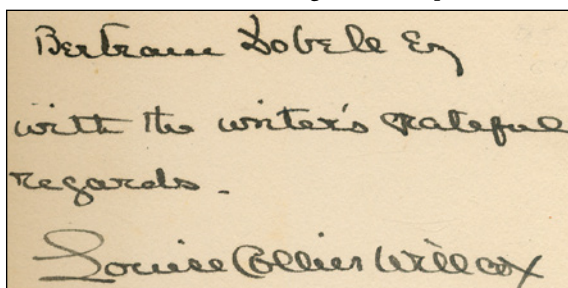 Bertram Dobell Esq
with the writer's grateful
regards.
Louise Collier Willcox